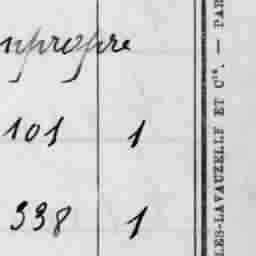 npropre
101 1
338 1
LES-LAVAUZELLE ET Cie. — PAR